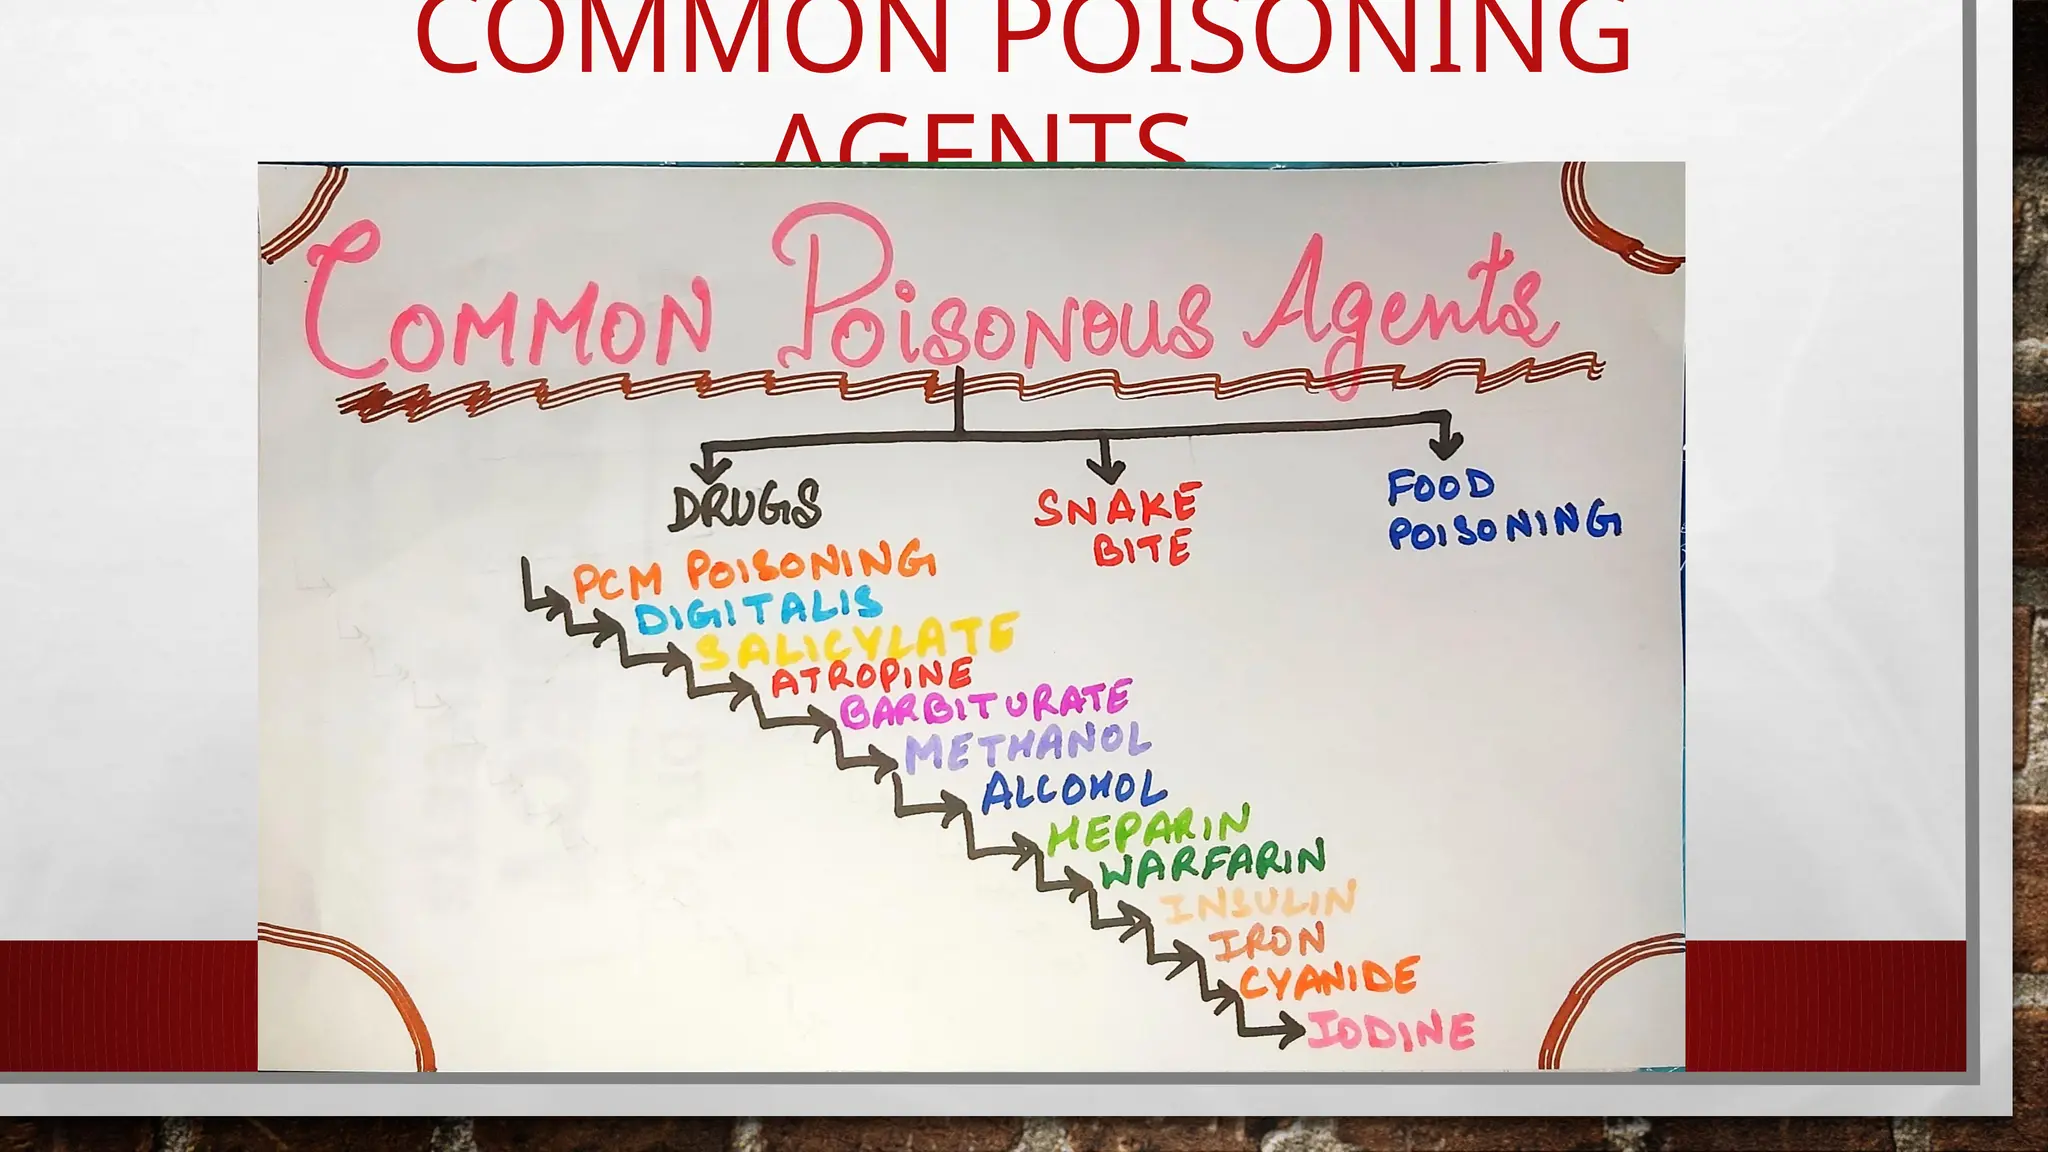 COMMON POISONING
AGENTS
COMMON POISONOUS Agents
DRUGS
SNAKE
BITE
FOOD
POISONING
PCM POISONING
DIGITALIS
SALICYLATE
ATROPINE
BARBITURATE
METHANOL
ALCOHOL
HEPARIN
WARFARIN
INSULIN
IRON
CYANIDE
IODINE